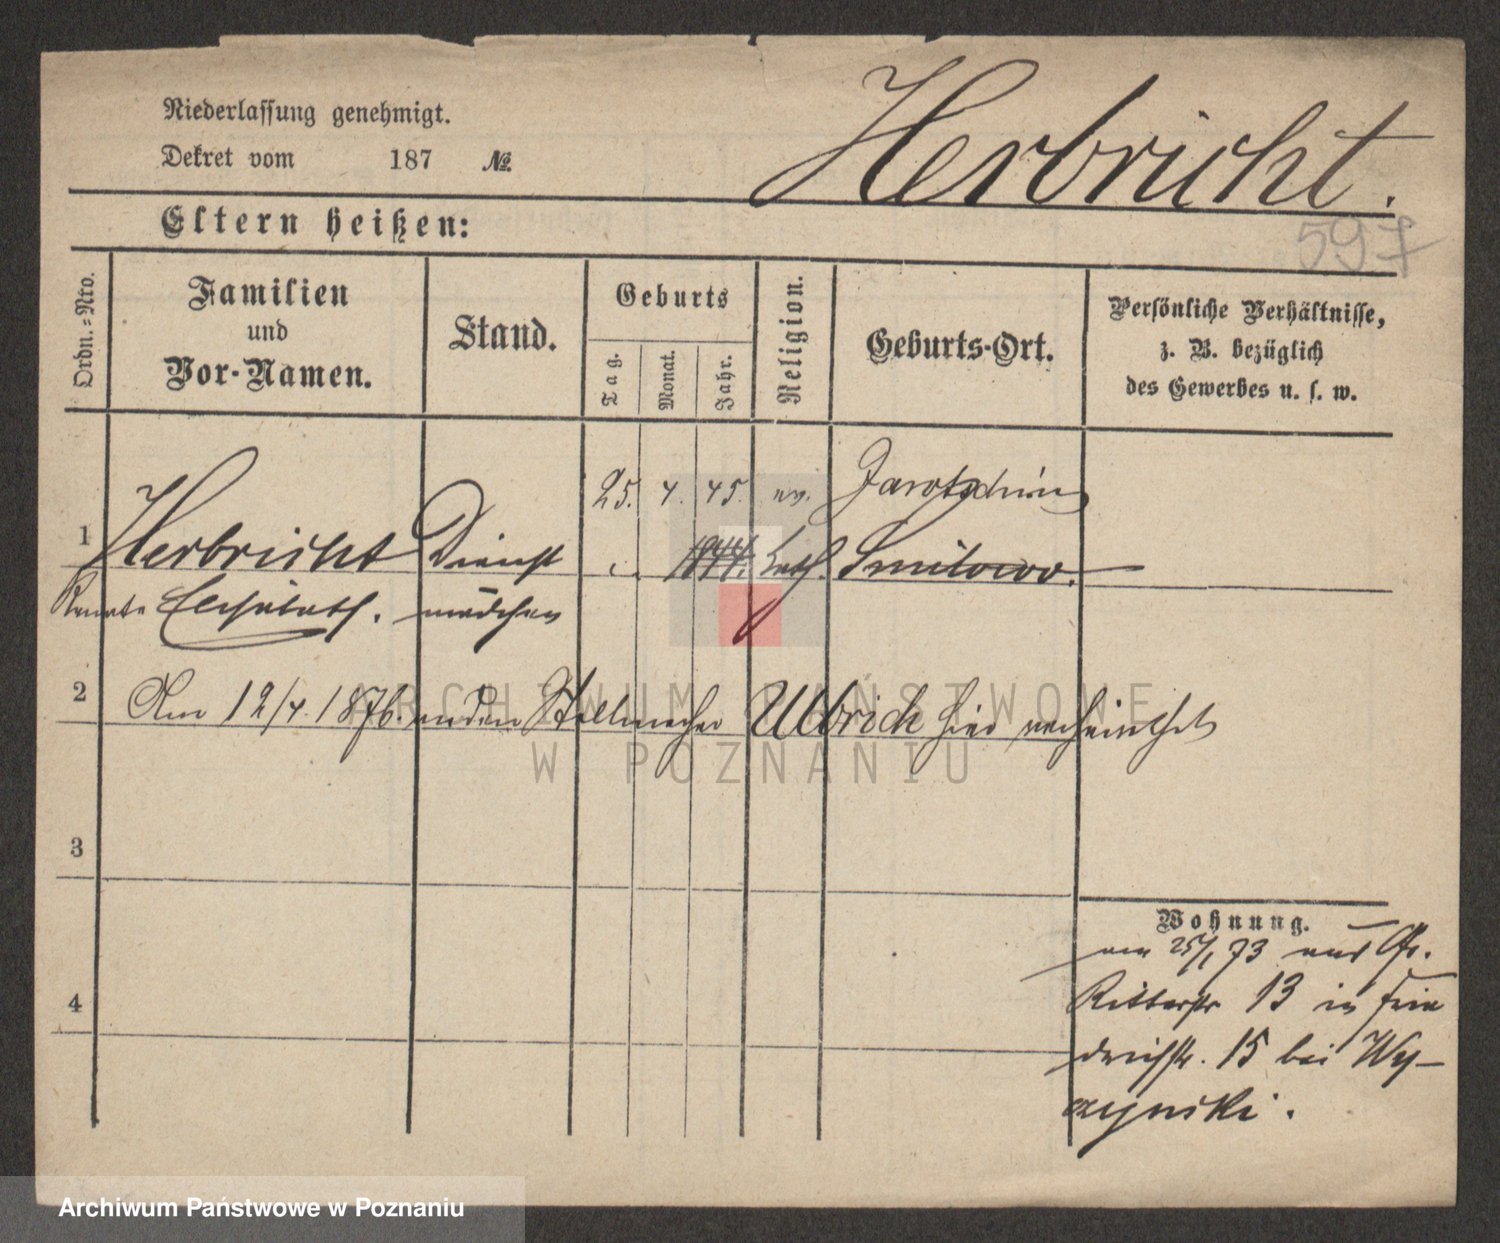 Niederlassung genehmigt.
Dekret vom 187 №.
Herbricht.
597
Eltern heißen:
Ordn.-Nro.
Familien
und
Vor-Namen.
Stand.
Geburts
Tag.
Monat.
Jahr.
Religion.
Geburts-Ort.
Persönliche Verhältnisse,
z. B. bezüglich
des Gewerbes u. s. w.
25. 4. 45. ev. Jarotschin
1 Herbricht Dienst 1844. kath. Smilowo.
Renate Elisabeth. mädchen
2 Am 12/4. 1876. an den Stellmacher Ulbrich hier verheirathet
3
4
Wohnung.
am 25/1 73 aus Gr.
Ritterstr 13 in Frie
drichstr. 15 bei Wy-
czynski.
ARCHIWUM PAŃSTWOWE
W POZNANIU
Archiwum Państwowe w Poznaniu